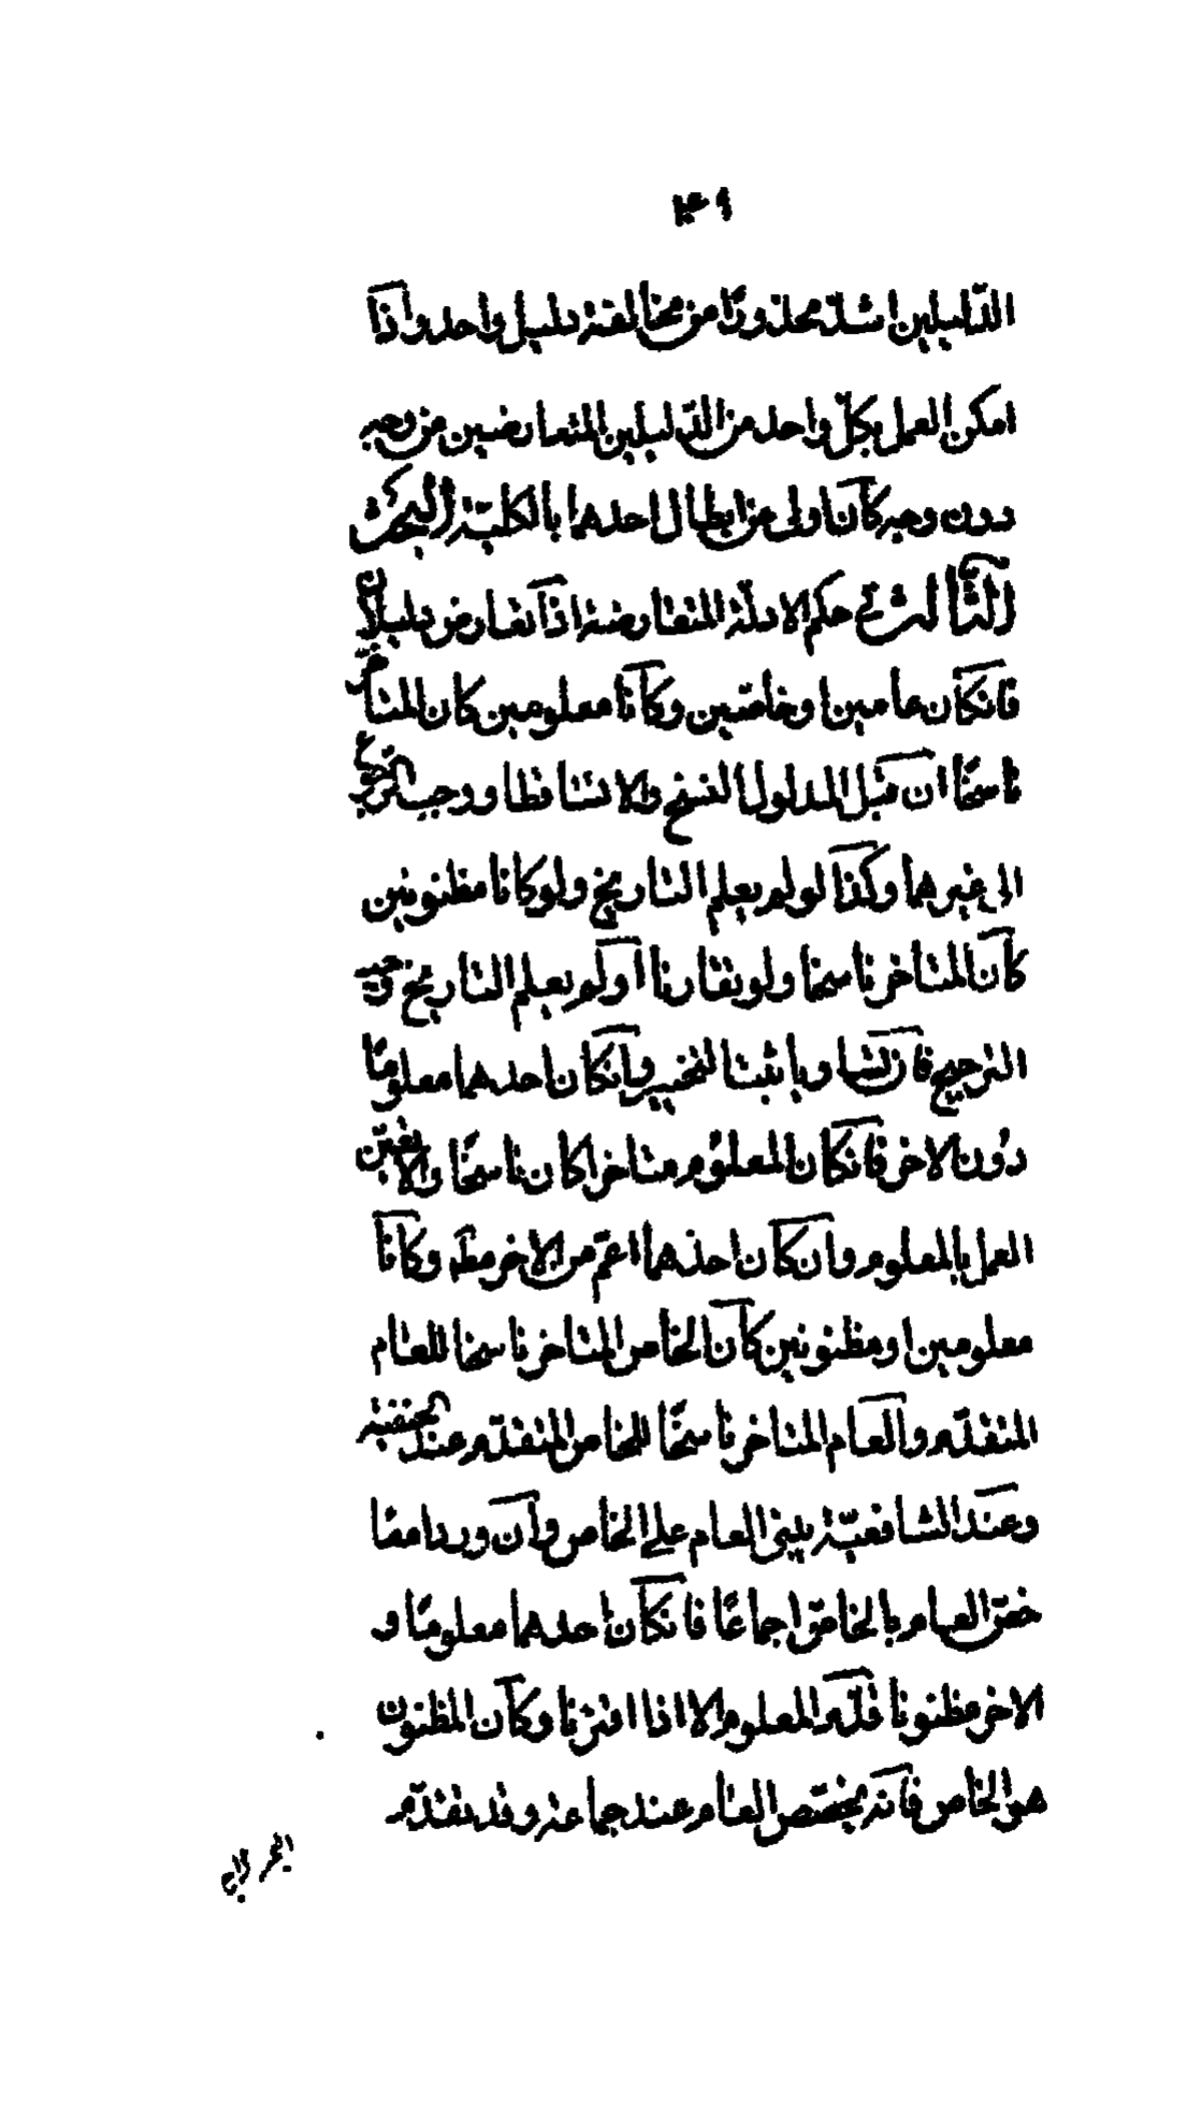 الدليلين اشدّ محذورًا من مخالفة دليل واحد واذا
امكن العمل بكلّ واحد من الدّليلين المتعارضين من وجه
دون وجه كان اولى من ابطال احدهما بالكليّة البحث
الثّالث في حكم الادلّة المتعارضة اذا تعارض دليلان
فانكان عامين او خاصّين وكانا معلومين كان المتأخر
ناسخًا ان قبل المدلول النسخ والا تساقطا ووجب الرجوع
الى غيرهما وكذا لو لم يعلم التاريخ ولو كانا مظنونين
كان المتاخر ناسخا ولو تقارنا او لم يعلم التاريخ وجب
الترجيح فان تساويا ثبت التخيير وانكان احدهما معلومًا
دون الاخر فانكان المعلوم متاخرا كان ناسخًا والا تعيّن
العمل بالمعلوم وان كان احدهما اعمّ من الاخر مطـ وكانا
معلومين او مظنونين كان الخاص المتاخر ناسخا للعام
المتقدّم والعام المتاخر ناسخًا للخاص المتقدّم عند الحنفية
وعند الشافعيّة يبنى العام على الخاص وان وردا معًا
خصّ العام بالخاصّ اجماعًا فانكان احدهما معلومًا و
الاخر مظنونا قدّم المعلوم الا اذا اقترنا وكان المظنون
هو الخاص فانه يخصّص العام عند جماعة وقد تقدّم